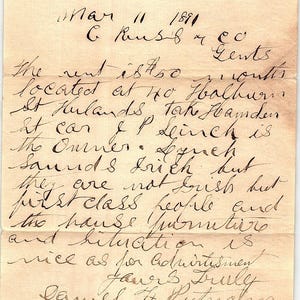 Mar 11 1891
C Russ & Co
Gents
The rent is $20 month
located at 40 Holburn
St Hulands Take Hamden
St car J P Leinch is
the Owner. Lynch
Sounds Irish but
they are not Irish but
first class people and
the house furniture
and Situation is
nice as per advertisment
Yours Truly
Samuel H